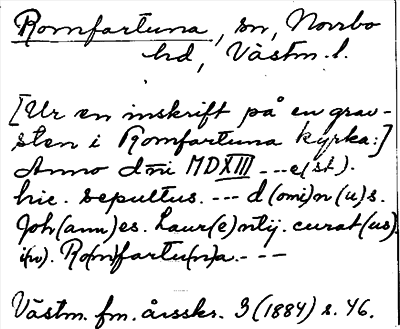 Romfartuna, sn, Norrbo
hd, Västm. l.
[Ur en inskrift på en grav-
sten i Romfartuna kyrka:]
Anno dni MDXIII --- e(st).
hic. sepultus. --- d(omi)n(u)s.
Joh(ann)es. Laur(e)ntij. curat(us).
i(n). Ro(m)fartu(n)a. ---
Västm. fm. årsskr. 3 (1884) s. 46.